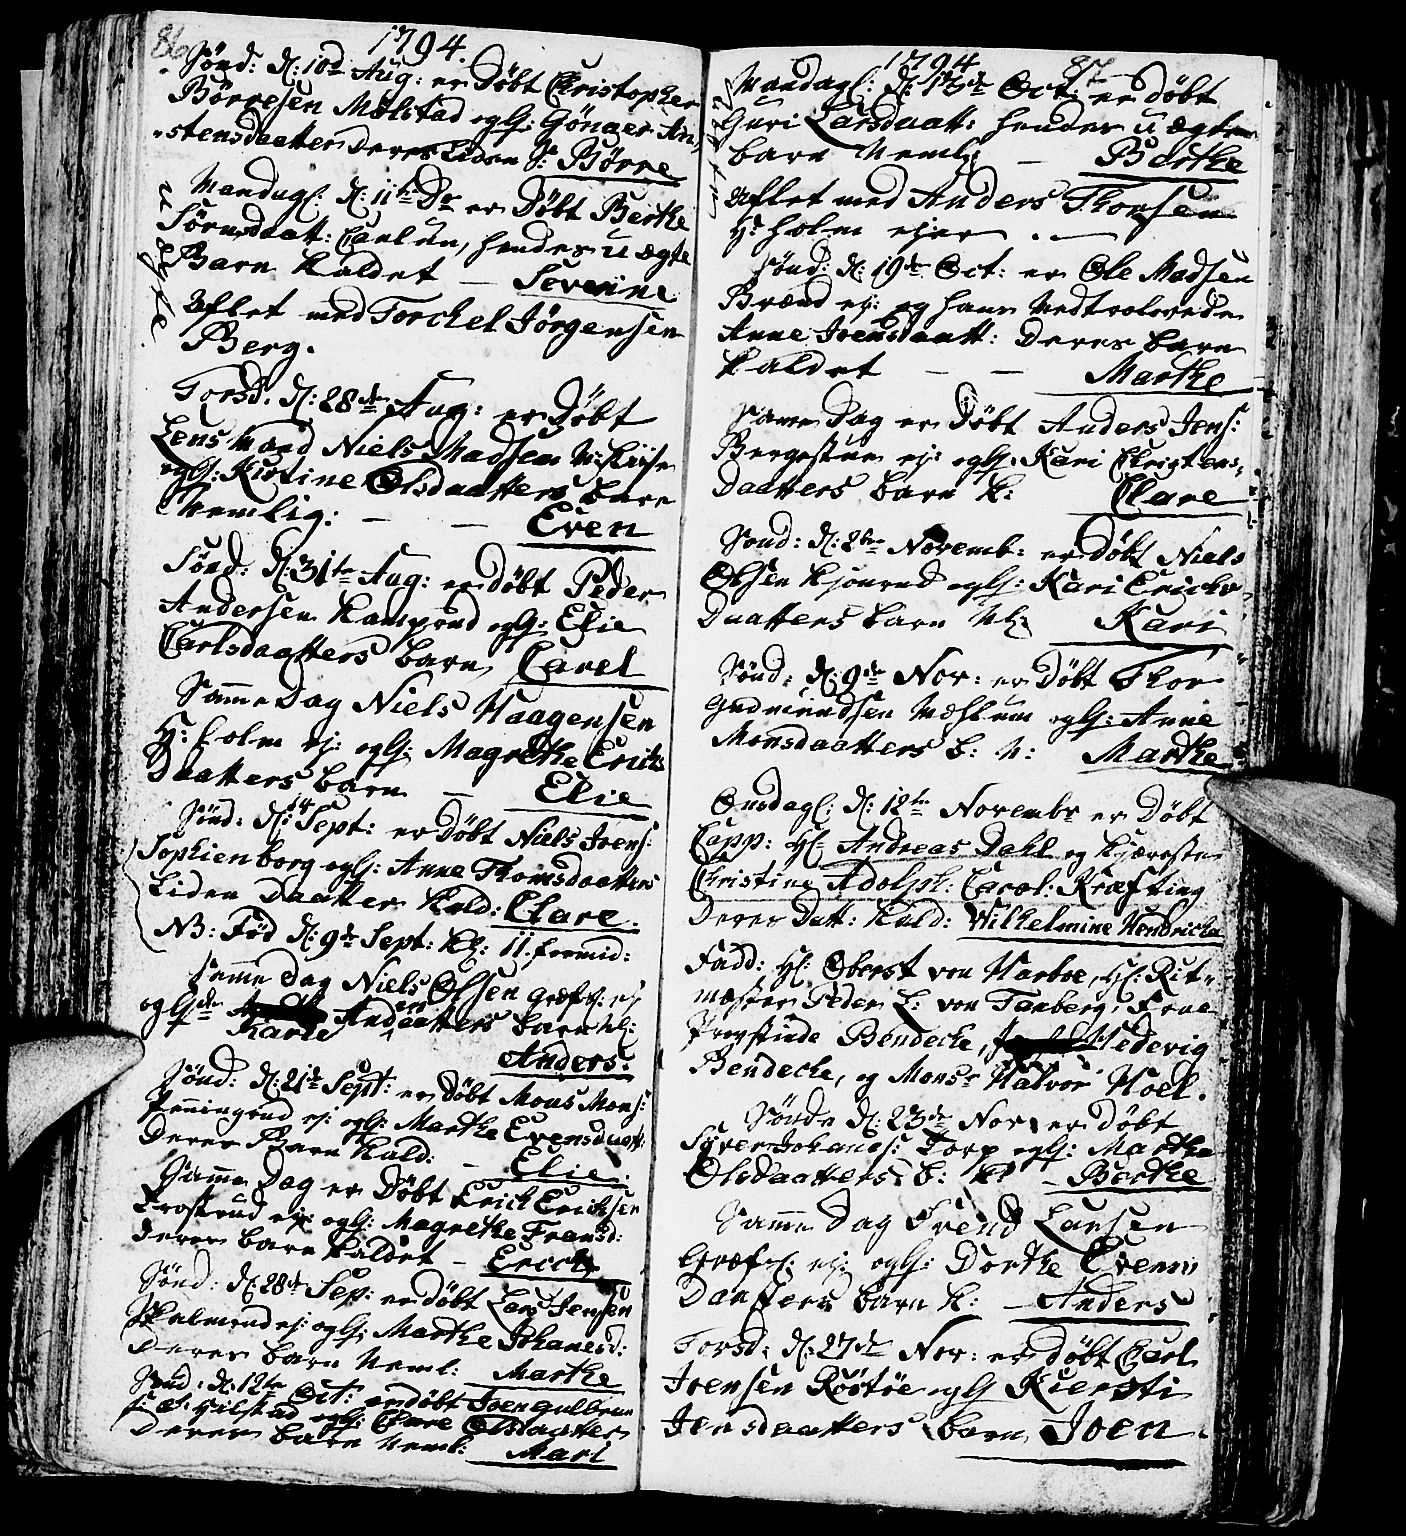 86
1794.
Sönd: d: 10de Aug: er Döbt Christopher
Börresen Mölstad og Gönaer An
stensdaatters deres Liden S: Börre
Mandagl: d: 11te Do er Döbt Berthe
Sörensdaatt: hendes u ægte
Barn kaldet — Severine
u ægte
Aflet med Torchel Jörgensen
Berg.
Torsd. d: 28de Aug: er Döbt
Lens Mand Niels Madsen
oglS: Kirstine Olsdaatters barn
Nemlig: — — Even
Sönd: d: 31te Aug: er döbt Peder
Andersen Kamprud oglS: Elie
Carlsdaatters barn Carel
Samme Dag Niels Haagensen
H: holm ej: oglS: Magrethe Erichs
Daatters barn — Elie
Sönd: d: 14 Sept: er Döbt Niels Joens:
Sophienborg oglS: Anne Thomsdaatters
Liden Daatter kald: Clare.
NB: Föd d: 9de Sept: kl: 11. formid:
Samme Dag Niels Olsen Græfs: ej
oglS: Karie Andersdaatters barn Nl:
Anders:
Sönd: d: 21de Sept: er döbt Mons Mons:
Penningrud ej: oglS: Marthe Evensdaatt:
deres Barn kald: — Elie.
Samme Dag er Döbt Erich Erichsen
Frostrud ej: oglS: Magrethe Fransd:
deres barn kaldet — Erich
Sönd: d: 28de Sep: er döbt Lars Jensen
Skalmerud ej: oglS: Marthe Johanesd:
deres barn Neml: Marthe
Sönd: d: 12te Oct: er döbt Joen Gulbran
s: ej: Hilstad oglS: Clare Olsdaatters
deres barn Neml: Mari
1794
87
Mandagl: d: 13de Oct: er döbt
Guri Larsdaatt: hendes u ægte
barn Neml: — Berthe
Aflet med Anders Thorsen
H: holm ejer . —
Sönd: d: 19de Oct: er Ole Madsen
Brænd ej: og hans Nedtrolovede
Anne Joensdaatt: deres barn
kaldet — — Marthe
Samme Dag er Döbt Anders Jens:
Bergestuen ej: oglS: Kari Christens
Daatters barn k: Clare
Sönd: d: 2den Novemb: er döbt Niels
Olsen Kjonrud oglS: Kari Erichs
Daatters barn Nl: Kari
Sönd: d: 9de Nov: er Döbt Thor
Gudmundsen Mæhlum oglS: Anne
Monsdaatters b: N: Marthe
Onsdagl: d: 12te Novembr er Döbt
Capp: Hr Andreas Dahl og Kjæreste
Christine Adolph: Carol: Kræfting
Deres Datt: kald: Wilhelmine Hendricha
Fadd: Hl: Oberst von Harboe, Hl: Rit-
mester Peder L: von Tanberg, Frue
Provstinde Bendecke, Hedevig
Bendeche, og Monsr Halvor Hoel.
Sönde d: 23de Nov: er döbt
Sören Johans: Dorp oglS: Marthe
Olsdaatters b: kl — Berthe
Samme Dag Svend Larsen
Græfs: ej: oglS: Dorthe Evens
Daatters barn k: — Anders
Torsd: d: 27de Nov: er döbt Carl
Joensen Röstöe oglS Kiersti
Jensdaatters barn Joen